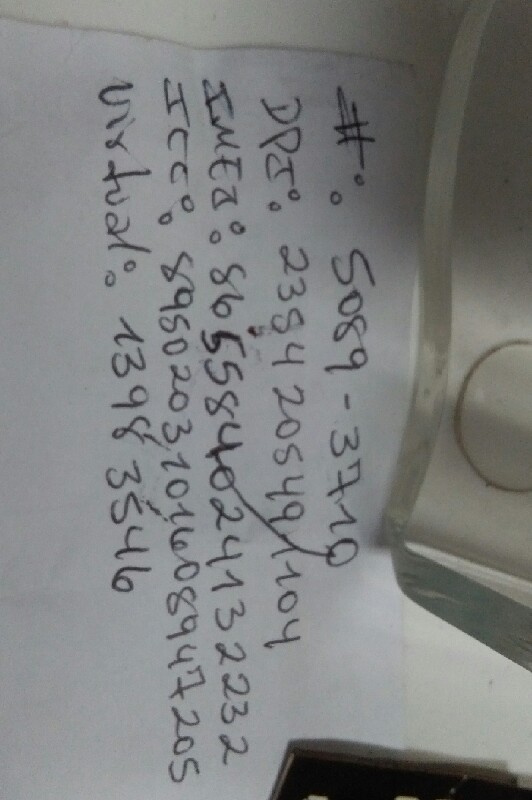 #: 5089-3710
DPI: 2384 20549 1104
IMEI: 865584024132232
ICC: 8950203101608947205
Virtual: 1398 3546